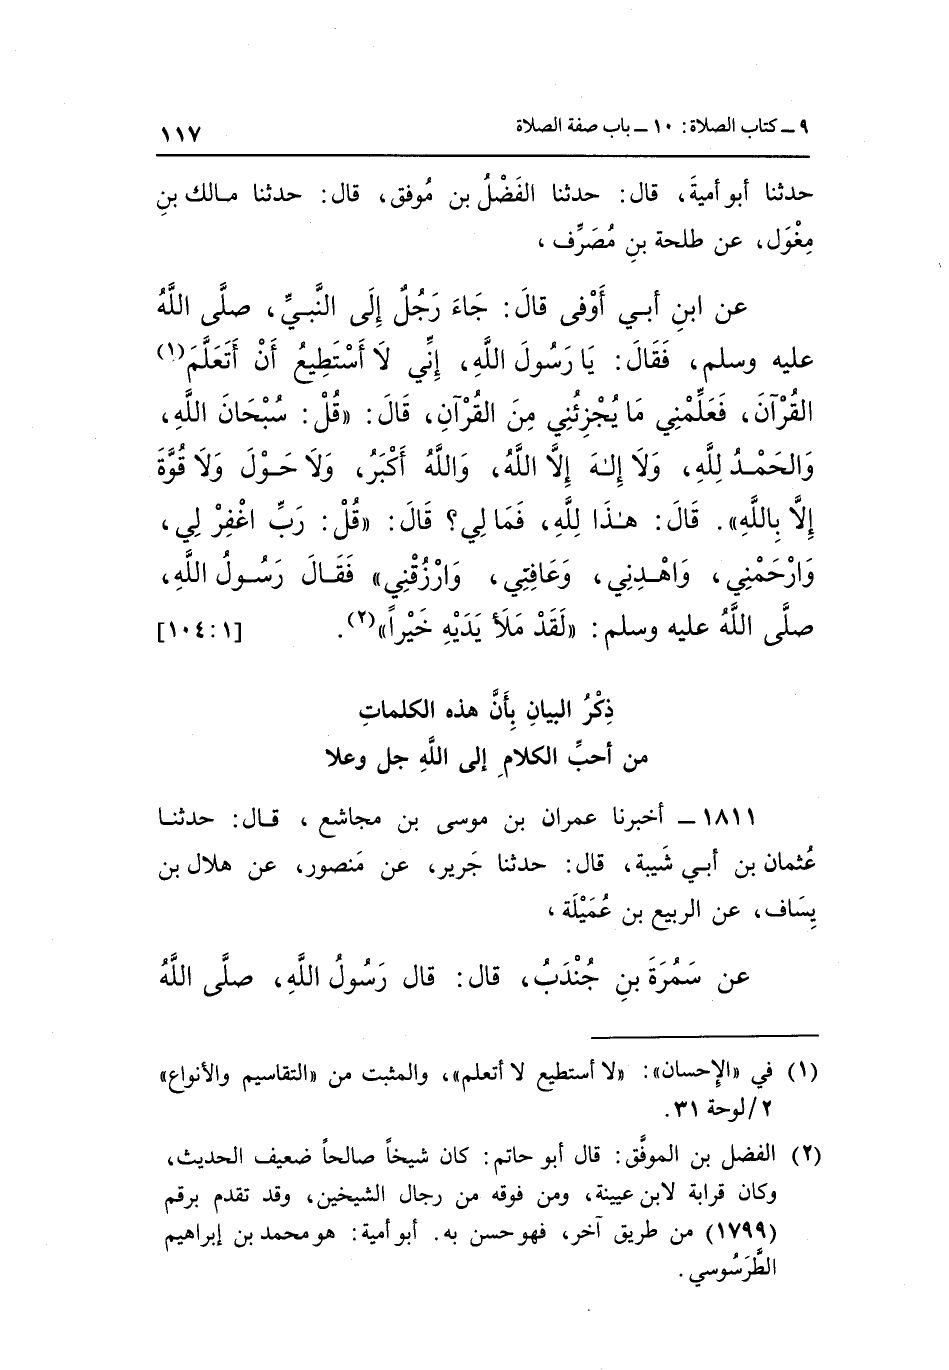 ٩ ـ كتاب الصلاة: ١٠ ـ باب صفة الصلاة ١١٧
حدثنا أبو أميةَ، قال: حدثنا الفَضْلُ بن مُوفق، قال: حدثنا مالك بنِ
مِغْوَل، عن طلحة بنِ مُصَرِّف،
عن ابنِ أبي أَوْفى قالَ: جَاءَ رَجُلٌ إِلَى النَّبيِّ، صلَّى اللَّهُ
عليه وسلم، فَقَالَ: يَا رَسُولَ اللَّهِ، إِنِّي لَا أَسْتَطِيعُ أَنْ أَتَعَلَّمَ(١)
القُرْآنَ، فَعَلِّمْنِي مَا يُجْزِئُنِي مِنَ القُرْآنِ، قَالَ: «قُلْ: سُبْحَانَ اللَّهِ،
وَالحَمْدُ لِلَّهِ، وَلَا إِلـٰهَ إِلَّا اللَّهُ، وَاللَّهُ أَكْبَرُ، وَلَا حَوْلَ وَلَا قُوَّةَ
إِلَّا بِاللَّهِ». قَالَ: هـٰذَا لِلَّهِ، فَمَا لِي؟ قَالَ: «قُلْ: رَبِّ اغْفِرْ لِي،
وَارْحَمْنِي، وَاهْدِنِي، وَعَافِنِي، وَارْزُقْنِي» فَقَالَ رَسُولُ اللَّهِ،
صلَّى اللَّهُ عليه وسلم: «لَقَدْ مَلَأَ يَدَيْهِ خَيْراً»(٢). [١٠٤:١]
ذِكْرُ البيانِ بِأَنَّ هذه الكلماتِ
من أحبِّ الكلامِ إلى اللَّهِ جل وعلا
١٨١١ ـ أخبرنا عمران بن موسى بن مجاشع، قال: حدثنا
عُثمان بن أبي شَيبة، قال: حدثنا جَرير، عن مَنصور، عن هلال بن
يِسَاف، عن الربيع بن عُمَيْلَة،
عن سَمُرَةَ بنِ جُنْدَبُ، قال: قال رَسُولُ اللَّهِ، صلَّى اللَّهُ
(١) في «الإحسان»: «لا أستطيع لا أتعلم»، والمثبت من «التقاسيم والأنواع»
٢/لوحة ٣١.
(٢) الفضل بن الموفَّق: قال أبو حاتم: كان شيخاً صالحاً ضعيف الحديث،
وكان قرابة لابن عيينة، ومن فوقه من رجال الشيخين، وقد تقدم برقم
(١٧٩٩) من طريق آخر، فهو حسن به. أبو أمية: هو محمد بن إبراهيم
الطَّرَسُوسي.